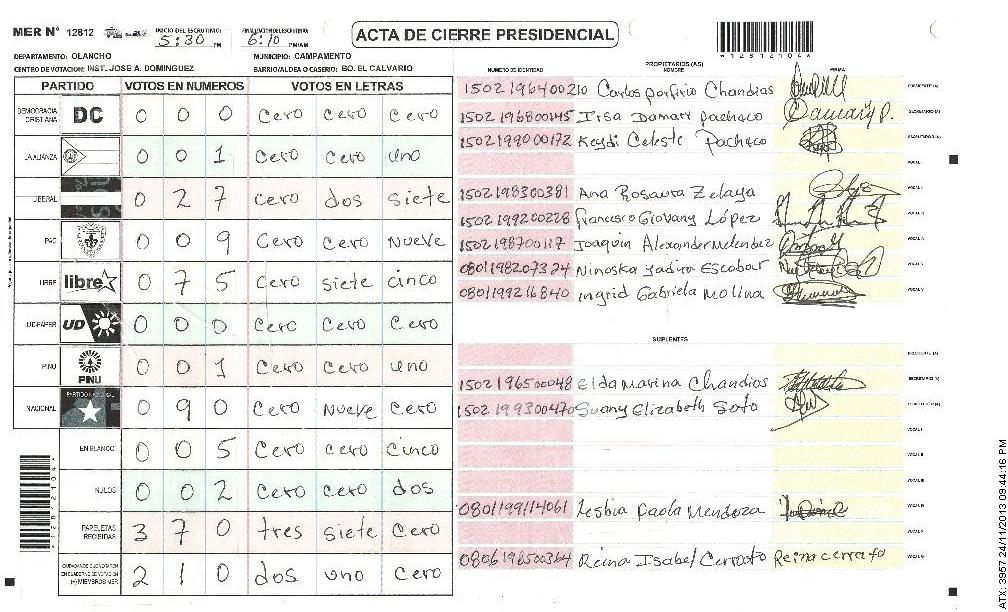 MER N° 12812 INICIO DEL ESCRUTINIO: 5:30 PM FINALIZACION DE ESCRUTINIO: 6:10 PM/AM
ACTA DE CIERRE PRESIDENCIAL
*12812104*
DEPARTAMENTO: OLANCHO MUNICIPIO: CAMPAMENTO
CENTRO DE VOTACION: INST. JOSE A. DOMINGUEZ BARRIO/ALDEA O CASERIO: BO. EL CALVARIO
PARTIDO VOTOS EN NUMEROS VOTOS EN LETRAS
DEMOCRACIA CRISTIANA DC 0 0 0 Cero cero cero
LA ALIANZA 0 0 1 Cero Cero uno
LIBERAL 0 2 7 Cero dos siete
PAC 0 0 9 Cero Cero Nueve
LIBRE libre 0 7 5 Cero siete cinco
UD-FAPER UD 0 0 0 Cero Cero Cero
PINU PINU 0 0 1 Cero Cero uno
NACIONAL PARTIDO NACIONAL 0 9 0 Cero Nueve Cero
EN BLANCO 0 0 5 Cero cero cinco
NULOS 0 0 2 Cero cero dos
PAPELETAS RECIBIDAS 3 7 0 tres siete Cero
CIUDADANOS QUE VOTARON EN CUADERNO DE VOTACION (+) MIEMBROS MER 2 1 0 dos uno Cero
PROPIETARIOS (AS)
NUMERO DE IDENTIDAD NOMBRE FIRMA
1502196400210 Carlos porfirio Chandias PRESIDENTE (A)
1502196800145 Irsa Damary pacheco Damary P. SECRETARIO (A)
1502199000172 Keydi Celeste Pacheco ESCRUTADOR (A)
VOCAL I
1502198300381 Ana Rosaura Zelaya VOCAL II
1502199200228 francisco Giovany López VOCAL III
1502198700117 Joaquin Alexander Melendez VOCAL IV
0801198207324 Ninoska Yadira Escobar VOCAL V
0801199216840 Ingrid Gabriela Molina VOCAL VI
SUPLENTES
PRESIDENTE (A)
1502196500048 Elda Marina Chandias SECRETARIO (A)
1502199300470 Suany Elizabeth Soto ESCRUTADOR (A)
VOCAL I
VOCAL II
VOCAL III
0801199114061 Lesbia Paola Mendoza VOCAL IV
VOCAL V
0806196500364 Reina Isabel Cerrato Reina cerrato VOCAL VI
*12812104*
ATX: 3957 24/11/2013 09:44:16 PM